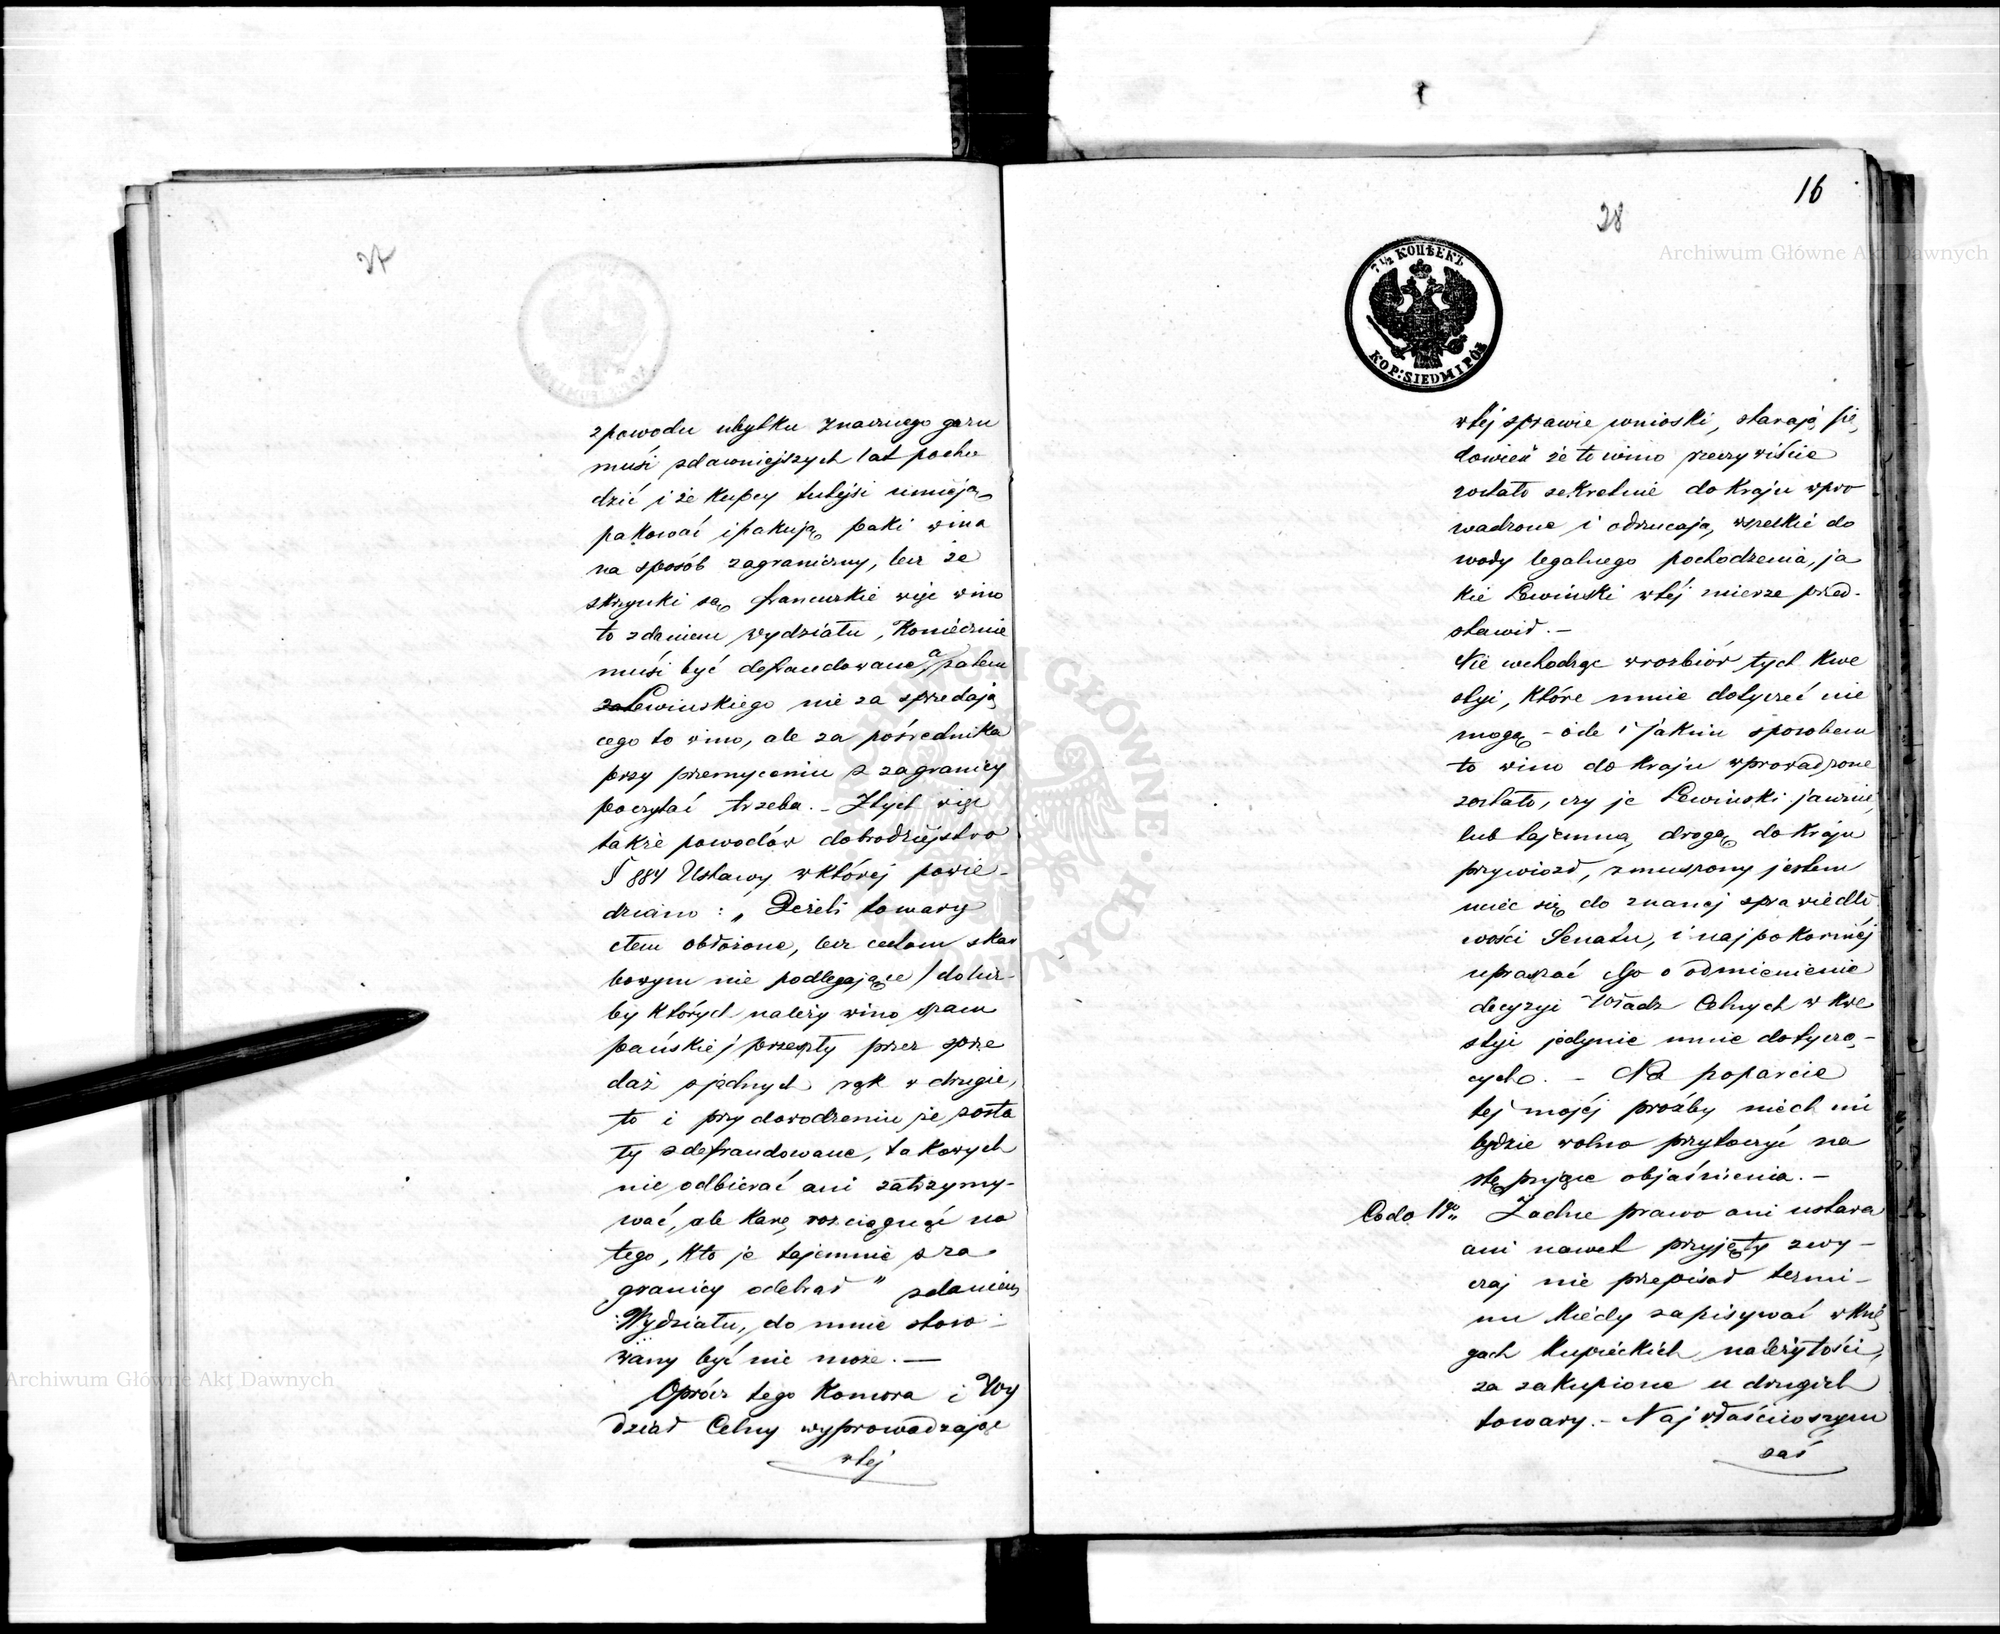 27
zpowodu ubytku znacznego gazu
musi zdawniejszych lat pocho
dzić i że kupcy tutejsi umieją
pakować i pakują paki wina
na sposób zagraniczny, lecz że
skrzynki są francuzkie więc wino
to zdaniem Wydziału, Koniecznie
musi być defraudowane a zatem
za Lewinskiego nie za sprzedają
cego to wino, ale za pośrednika
przy przemyceniu z zagranicy
poczytać trzeba. – Z tych więc
także powodów dobrodziejstwo
§ 884 Ustawy w której powie-
dziano: „Jeżeli towary
cłem obłożone, lecz cechom skar
bowym nie podlegające / do licz-
by których należy wino szam
pańskie / przeszły przez sprze
daż z jednych rąk w drugie,
to i przy dowodzeniu że zosta
ły zdefraudowane, takowych
nie odbierać ani zatrzymy-
wać, ale karę rozciągnąć na
tego, kto je tajemnie z za
granicy odebrał" zdaniem
Wydziału, do mnie stoso-
wany być nie może. —
Oprócz tego Komora i Wy
dział Celny wyprowadzając
wtej
16
28
7½ КОПѢЕКЪ
KOP: SIEDM I PÓŁ
wtej sprawie wnioski, starają się
dowieść że to wino rzeczywiście
zostało sekretnie do Kraju wpro
wadzone i odrzucają wszelkie do
wody legalnego pochodzenia, ja
kie Lewiński wtéj mierze przed-
stawił. –
Nie wchodząc w rozbiór tych kwe
styi, które mnie dotyczeć nie
mogą – o ile i jakim sposobem
to wino do kraju wprowadzone
zostało, czy je Lewinski jawnie
lub tajemną drogą do Kraju
przywiózł, zmuszony jestem
uciec się do znanej sprawiedli
wości Senatu, i najpokorniéj
upraszać Go o odmienienie
decyzyi Władz Celnych w kwe
styi jedynie mnie dotyczą-
cych. – Na poparcie
tej mojéj prośby niech mi
będzie wolno przytoczyć na
stępujące objaśnienia. –
Co do 1go Żadne prawo ani ustawa
ani nawet przyjęty zwy-
czaj nie przepisał termi-
nu kiedy zapisywać w księ
gach kupieckich należytości,
za zakupione u drugich
towary. – Najwłaściwszym
zaś
Archiwum Główne Akt Dawnych
Archiwum Główne Akt Dawnych